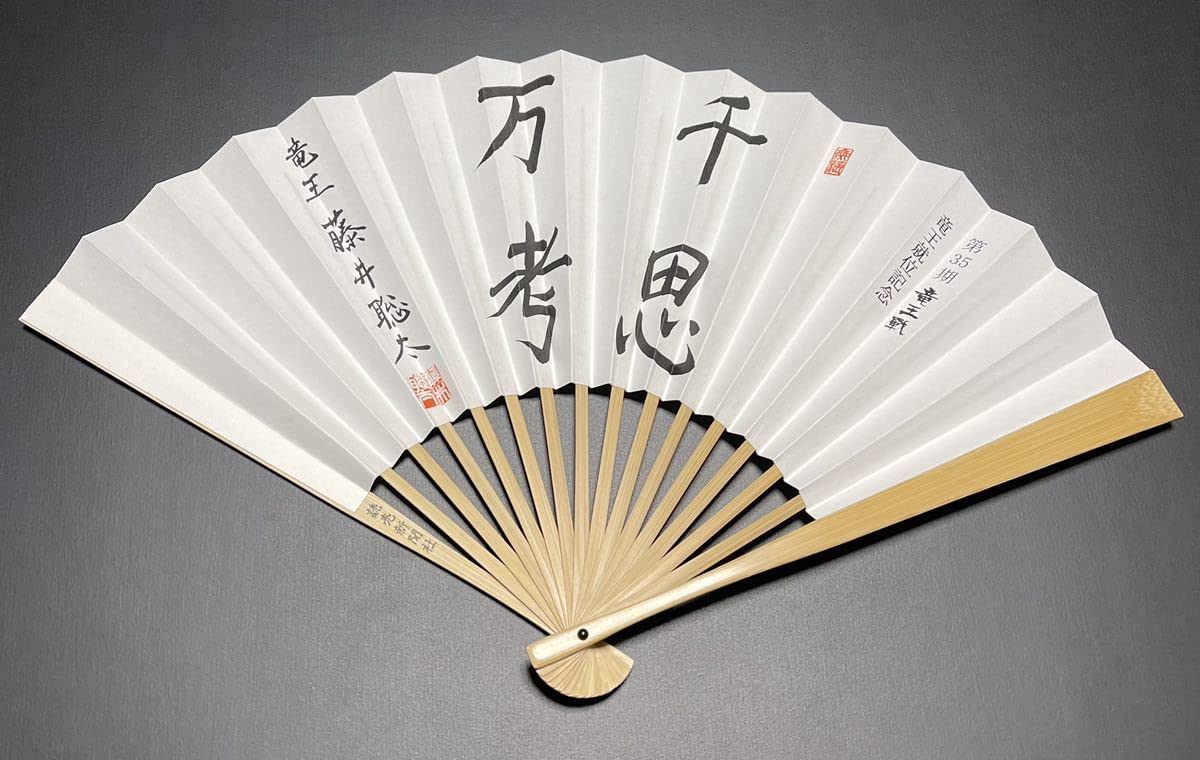 第35期竜王戦
竜王就位記念
千思
万考
竜王 藤井聡太
読売新聞社